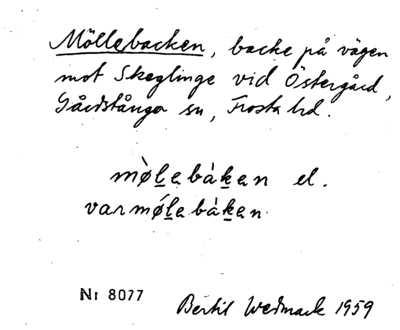 Möllebacken, backe på vägen
mot Skeglinge vid Östergård,
Gårdstånga sn, Frosta hd.
mø̀lebàken el.
varmǿlebàken.
Nr 8077
Bertil Wedmark 1959